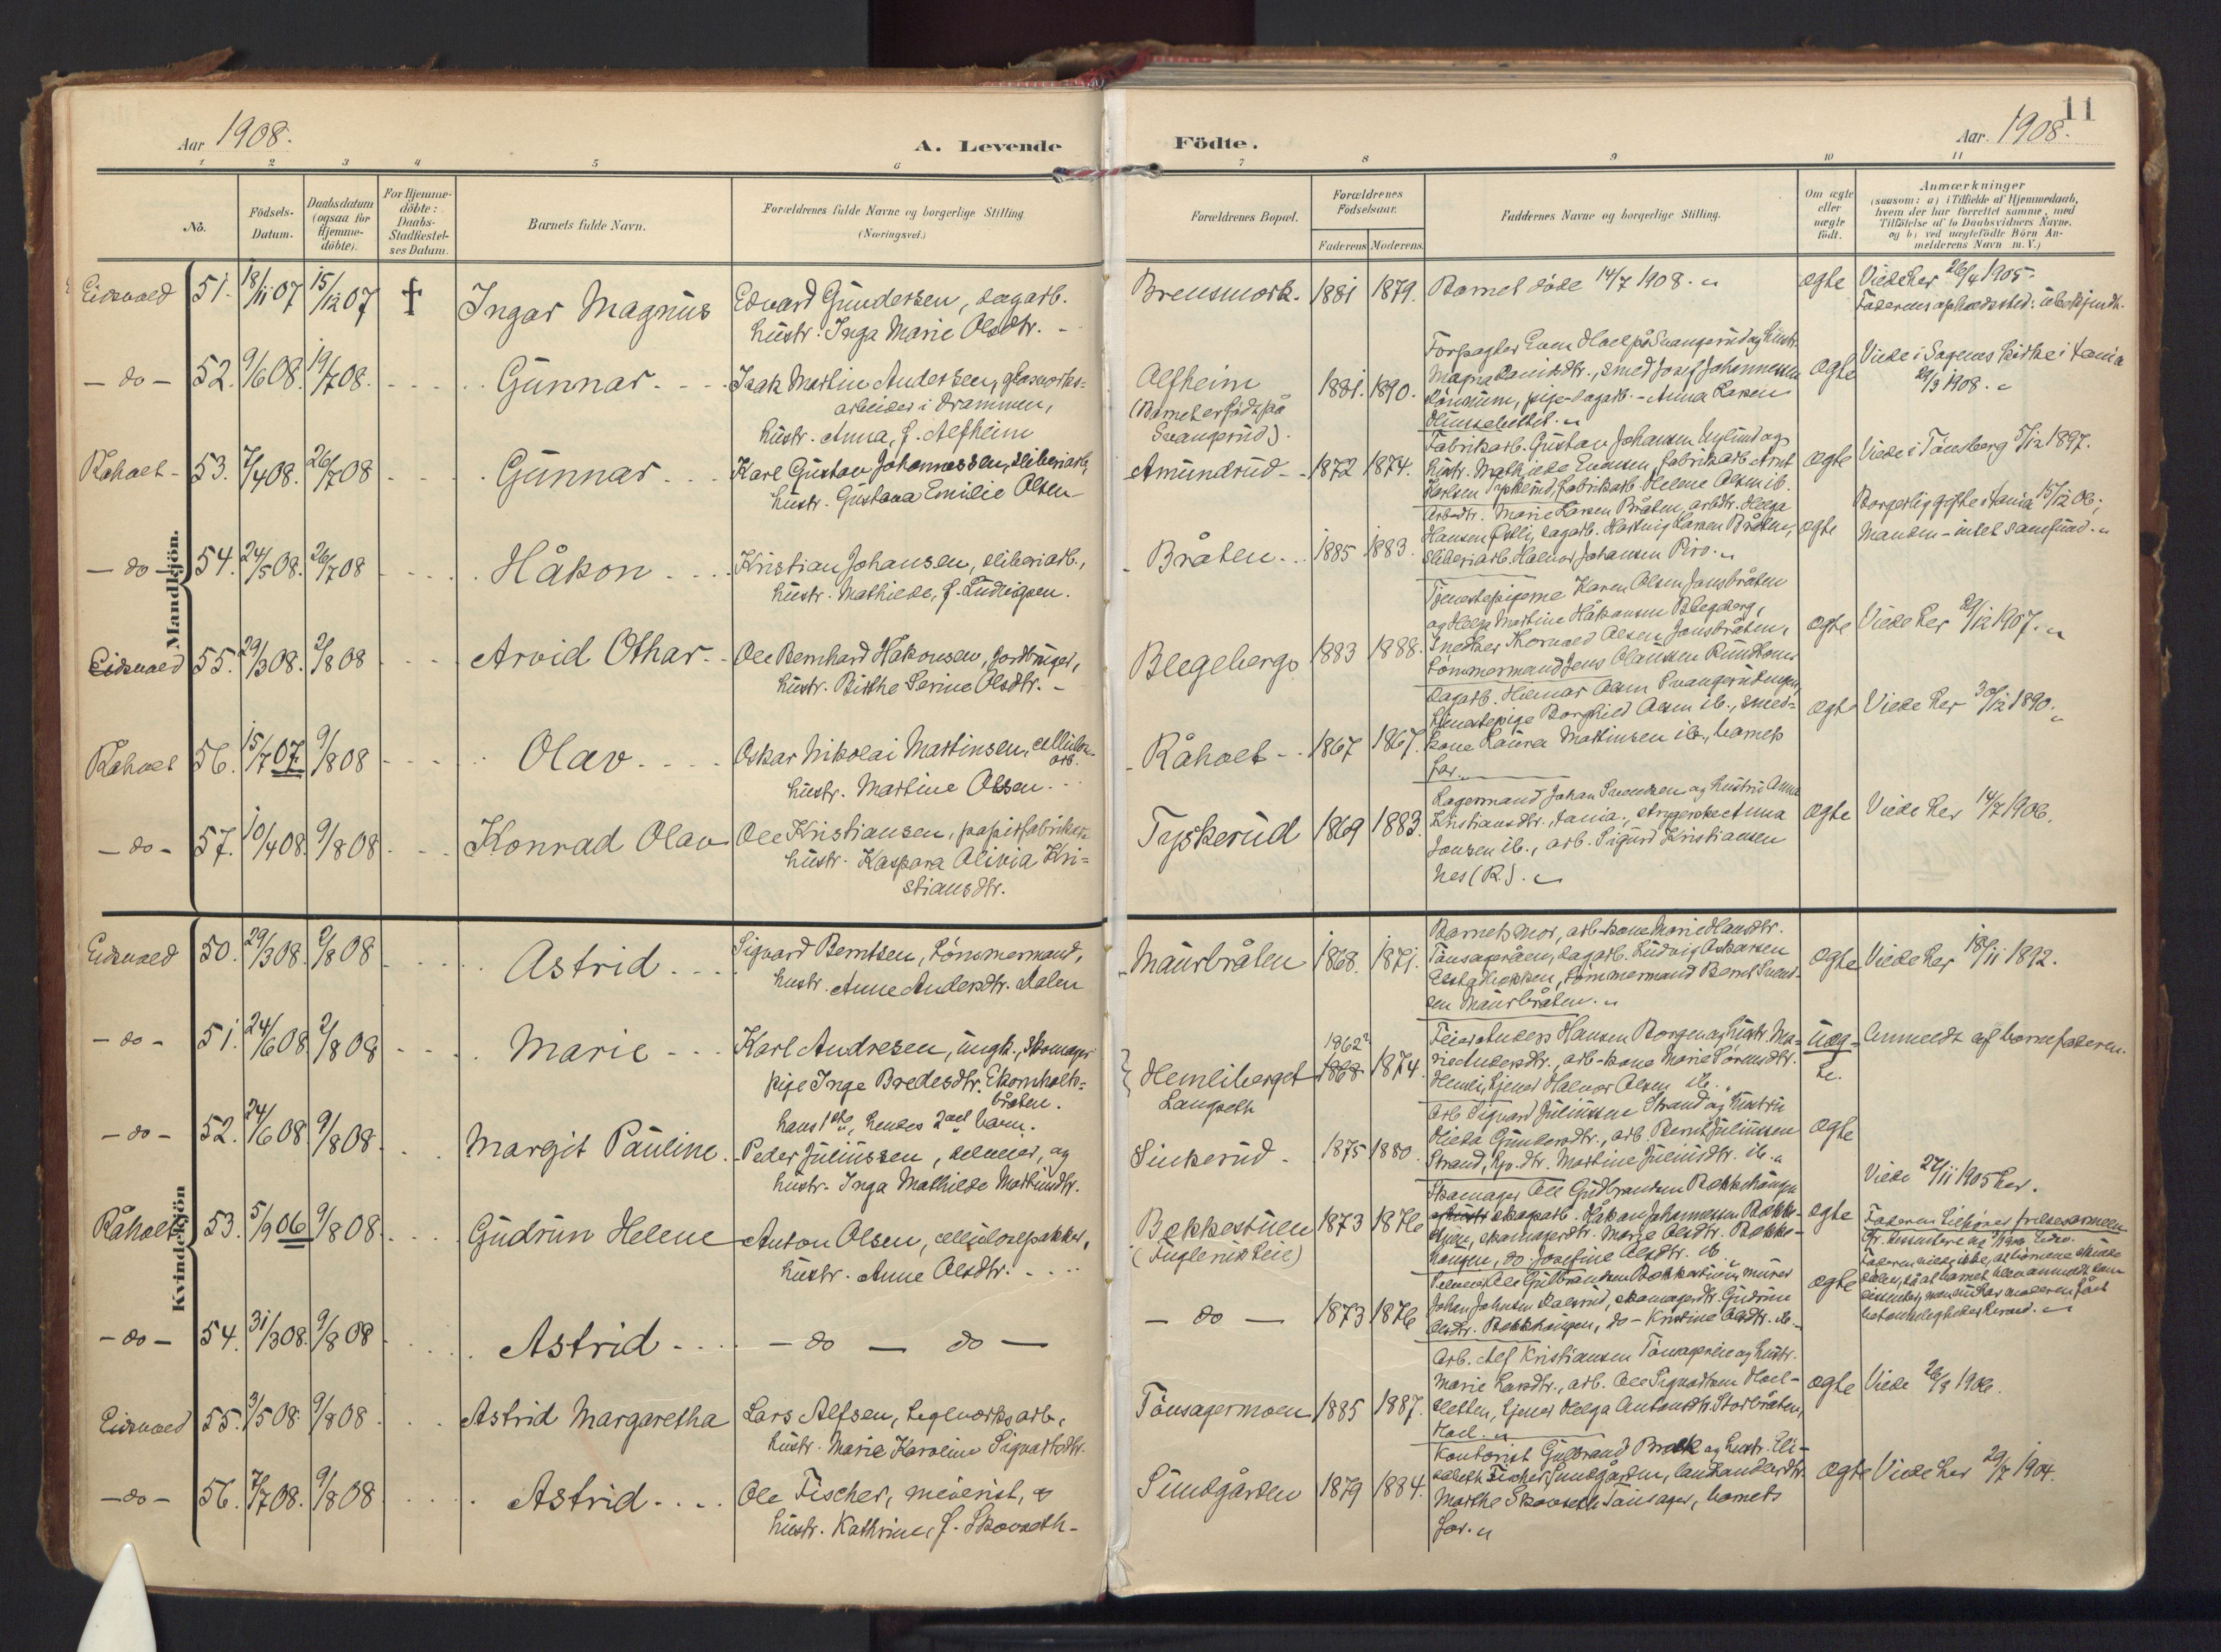 Aar 1908.
A. Levende Födte.
Aar. 1908.
11
1 2 3 4 5 6 7 8 9 10 11
No.
Födsels-
Datum.
Daabsdatum
(ogsaa for
Hjemme-
döbte).
For Hjemme-
döbte:
Daabs-
Stadfæstel-
ses Datum.
Barnets fulde Navn.
Forældrenes fulde Navne og borgerlige Stilling
(Næringsvei.)
Forældrenes Bopæl.
Forældrenes
Födselsaar.
Faderens Moderens.
Faddernes Navne og borgerlige Stilling.
Om ægte
eller
uægte
födt.
Anmærkninger
(saasom: a) i Tilfælde af Hjemmedaab,
hvem der har forrettet samme, med
Tilföielse af to Daabsvidners Navne,
og b) ved uægtefödte Börn An-
melderens Navn m. V.)
Mandkjön.
Eidsvold 51. 18/11 07 15/12 07 † Ingar Magnus
Edvard Gundersen, dagarb.
hustr. Inga Marie Olsdtr.
Brensmork. 1881 1879. Barnet döde 14/7 1908.
ægte Viede her 26/4 1905.
- do - 52. 9/6 08. 19/7 08. Gunnar
Isak Martin Andersen, glasværks-
arbeider i Drammen,
hustr. Anna, f. Alfheim
Alfheim
(Barnet er födt på
Svangerud).
1881. 1890.
Forpagter Even Hoel på Svangerud og hustr.
Magna Davidsdtr., smed Josef Johannessen
ægte Viede i Sagenes kirke i Xania
29/3 1908.
Råholt 53. 7/4 08. 26/7 08 Gunnar
Karl Gustav Johannessen, sliberiarb.,
hustr. Gustava Emilie Olsen
Amundrud 1872 1874.
Fabrikarb. Gustav Johansen Nylund og
hustr. Mathilde Evensen, fabrikarb. Arnt
Karlsen Tyskerud, fabrikarb. Helene Olsen ib.
ægte Viede i Tönsberg 5/12 1897.
- do - 54. 24/5 08. 26/7 08 Håkon
Kristian Johansen, sliberiarb.,
hustr. Mathilde, f. Ludvigsen.
Bråten 1885 1883.
Arb-dtr. Marie Larsen Bråten, arbdtr. Helga
Hansen Östli, dagarb. Hartvig Larsen Bråten,
sliberiarb. Halvor Johansen Piro.
ægte Borgerlig gifte i Xania 15/12 06;
Manden - intet samfund.
Eidsvold 55. 29/3 08. 2/8 08 Arvid Othar
Ole Bernhard Håkonsen, jordbruger,
hustr. Birthe Serine Olsdtr.
Blegeberg 1883 1888.
Tjenestepigerne Karen Olsen Jonsbråten
og Helga Martine Håkonsen Blegeberg,
snedker Kornvald Olsen Jonsbråten,
tömmermand Jens Olaussen
ægte Viede her 29/12 1907.
Råholt 56. 15/7 07 9/8 08 Olav
Oskar Nikolai Martinsen, cellulose-
arb.
hustr. Martine Olsen
Råholt 1867 1867.
Dagarb. Hilmar Olsen
tjenestepige Borghild Olsen ib., smed-
kone Laura Martinsen ib., barnets
far.
ægte Viede her 30/12 1890.
- do - 57. 10/4 08. 9/8 08 Konrad Olav
Ole Kristiansen, papirfabrikarb.
hustr. Kaspara Olivia Kri-
stiansdtr.
Tyskerud 1869 1883.
Lagermand Johan Svendsen og hustru Anna
Kristiansdtr. Xania, Anna
Jonsen ib., arb. Sigurd Kristiansen
Nes (R.).
ægte Viede her 14/7 1906.
Kvindekjön
Eidsvold 50. 29/3 08. 2/8 08 Astrid
Sigvard Berntsen, tömmermand,
hustr. Anne Andersdtr. Dalen
Maurbråten 1868. 1871.
Barnets mor, arb-kone Marie Hansdtr.
Tönsageråen, dagarb. Ludvig Oskarsen
tömmermand Bernt Svend-
sen Maurbråten.
ægte Viede her 18/11 1892.
- do - 51. 24/6 08 2/8 08 Marie
Karl Andresen, ungk., skomager
pige Inge Bredesdtr. Ekornholts-
bråten.
hans 1ste, hendes 2det barn.
Hemliberget
Langseth
1962?
1868 1874.
Feier Anders Hansen Borgen og hustr. Ma-
rie Andersdtr., arb-kone Marie Sörensdtr.
Hemli, tjener Halvor Olsen ib.
uæg-
te.
Anmeldt af barnefaderen.
- do - 52. 24/6 08 9/8 08. Margit Pauline
Peder Juliussen, selveier, og
hustr. Inga Mathilde Martinsdtr.
Sinkerud 1875 1880.
Arb. Sigvard Juliussen Strand og hustru
Hilda Gundersdtr., arb. Bernt Juliussen
Strand, gjv.dtr. Martine Juliusdtr. ib.
ægte Viede 27/11 1905 her.
Råholt 53. 5/9 06 9/8 08. Gudrun Helene
Anton Olsen, cellulosepakker,
hustr. Anne Olsdtr.
Bekkestuen
(Fuglerudlien)
1873 1876
Skomager Ole Gudbrandsen Bekkehaugen
skogarb. Håkon Johannessen Bekke-
stuen, skomagerdtr. Marie Olsdtr. Bekke-
haugen, do Josefine Olsdtr. ib.
ægte Faderen tilhörer frelsesarmeen
- do - 54. 31/3 08. 9/8 08 Astrid - do - do -
- do - 1873 1876
Ole Gudbrandsen Bekkestuen, murer
Johan Johnsen Dalsrud, skomagerdtr. Gudrun
Olsdtr. Bekkhaugen, do - Kristine Olsdtr. ib.
ægte
Eidsvold 55. 3/5 08. 9/8 08 Astrid Margaretha
Lars Alfsen, teglverksarb.,
hustr. Marie Karoline Sigvartsdtr.
Tönsagermoen 1885 1887.
Arb. Alf Kristiansen Tönsagereie og hustr.
Marie Larsdtr., arb. Ole Sigvartsen Hoel-
sletten, tjener Helga Antonsdtr. Storbråten,
Hoel.
ægte Viede 26/8 1906.
- do - 56. 7/7 08. 9/8 08 Astrid
Ole Fischer, meierist, og
hustr. Kathrine, f. Skovseth
Sundgården 1879 1884.
Kontorist Gulbrand Brekk og hustr. Eli-
sabeth Fischer, Sundgården, landhandlerdtr.
Marthe Skovseth Tönsager, barnets
far.
ægte Viede her 29/7 1904.